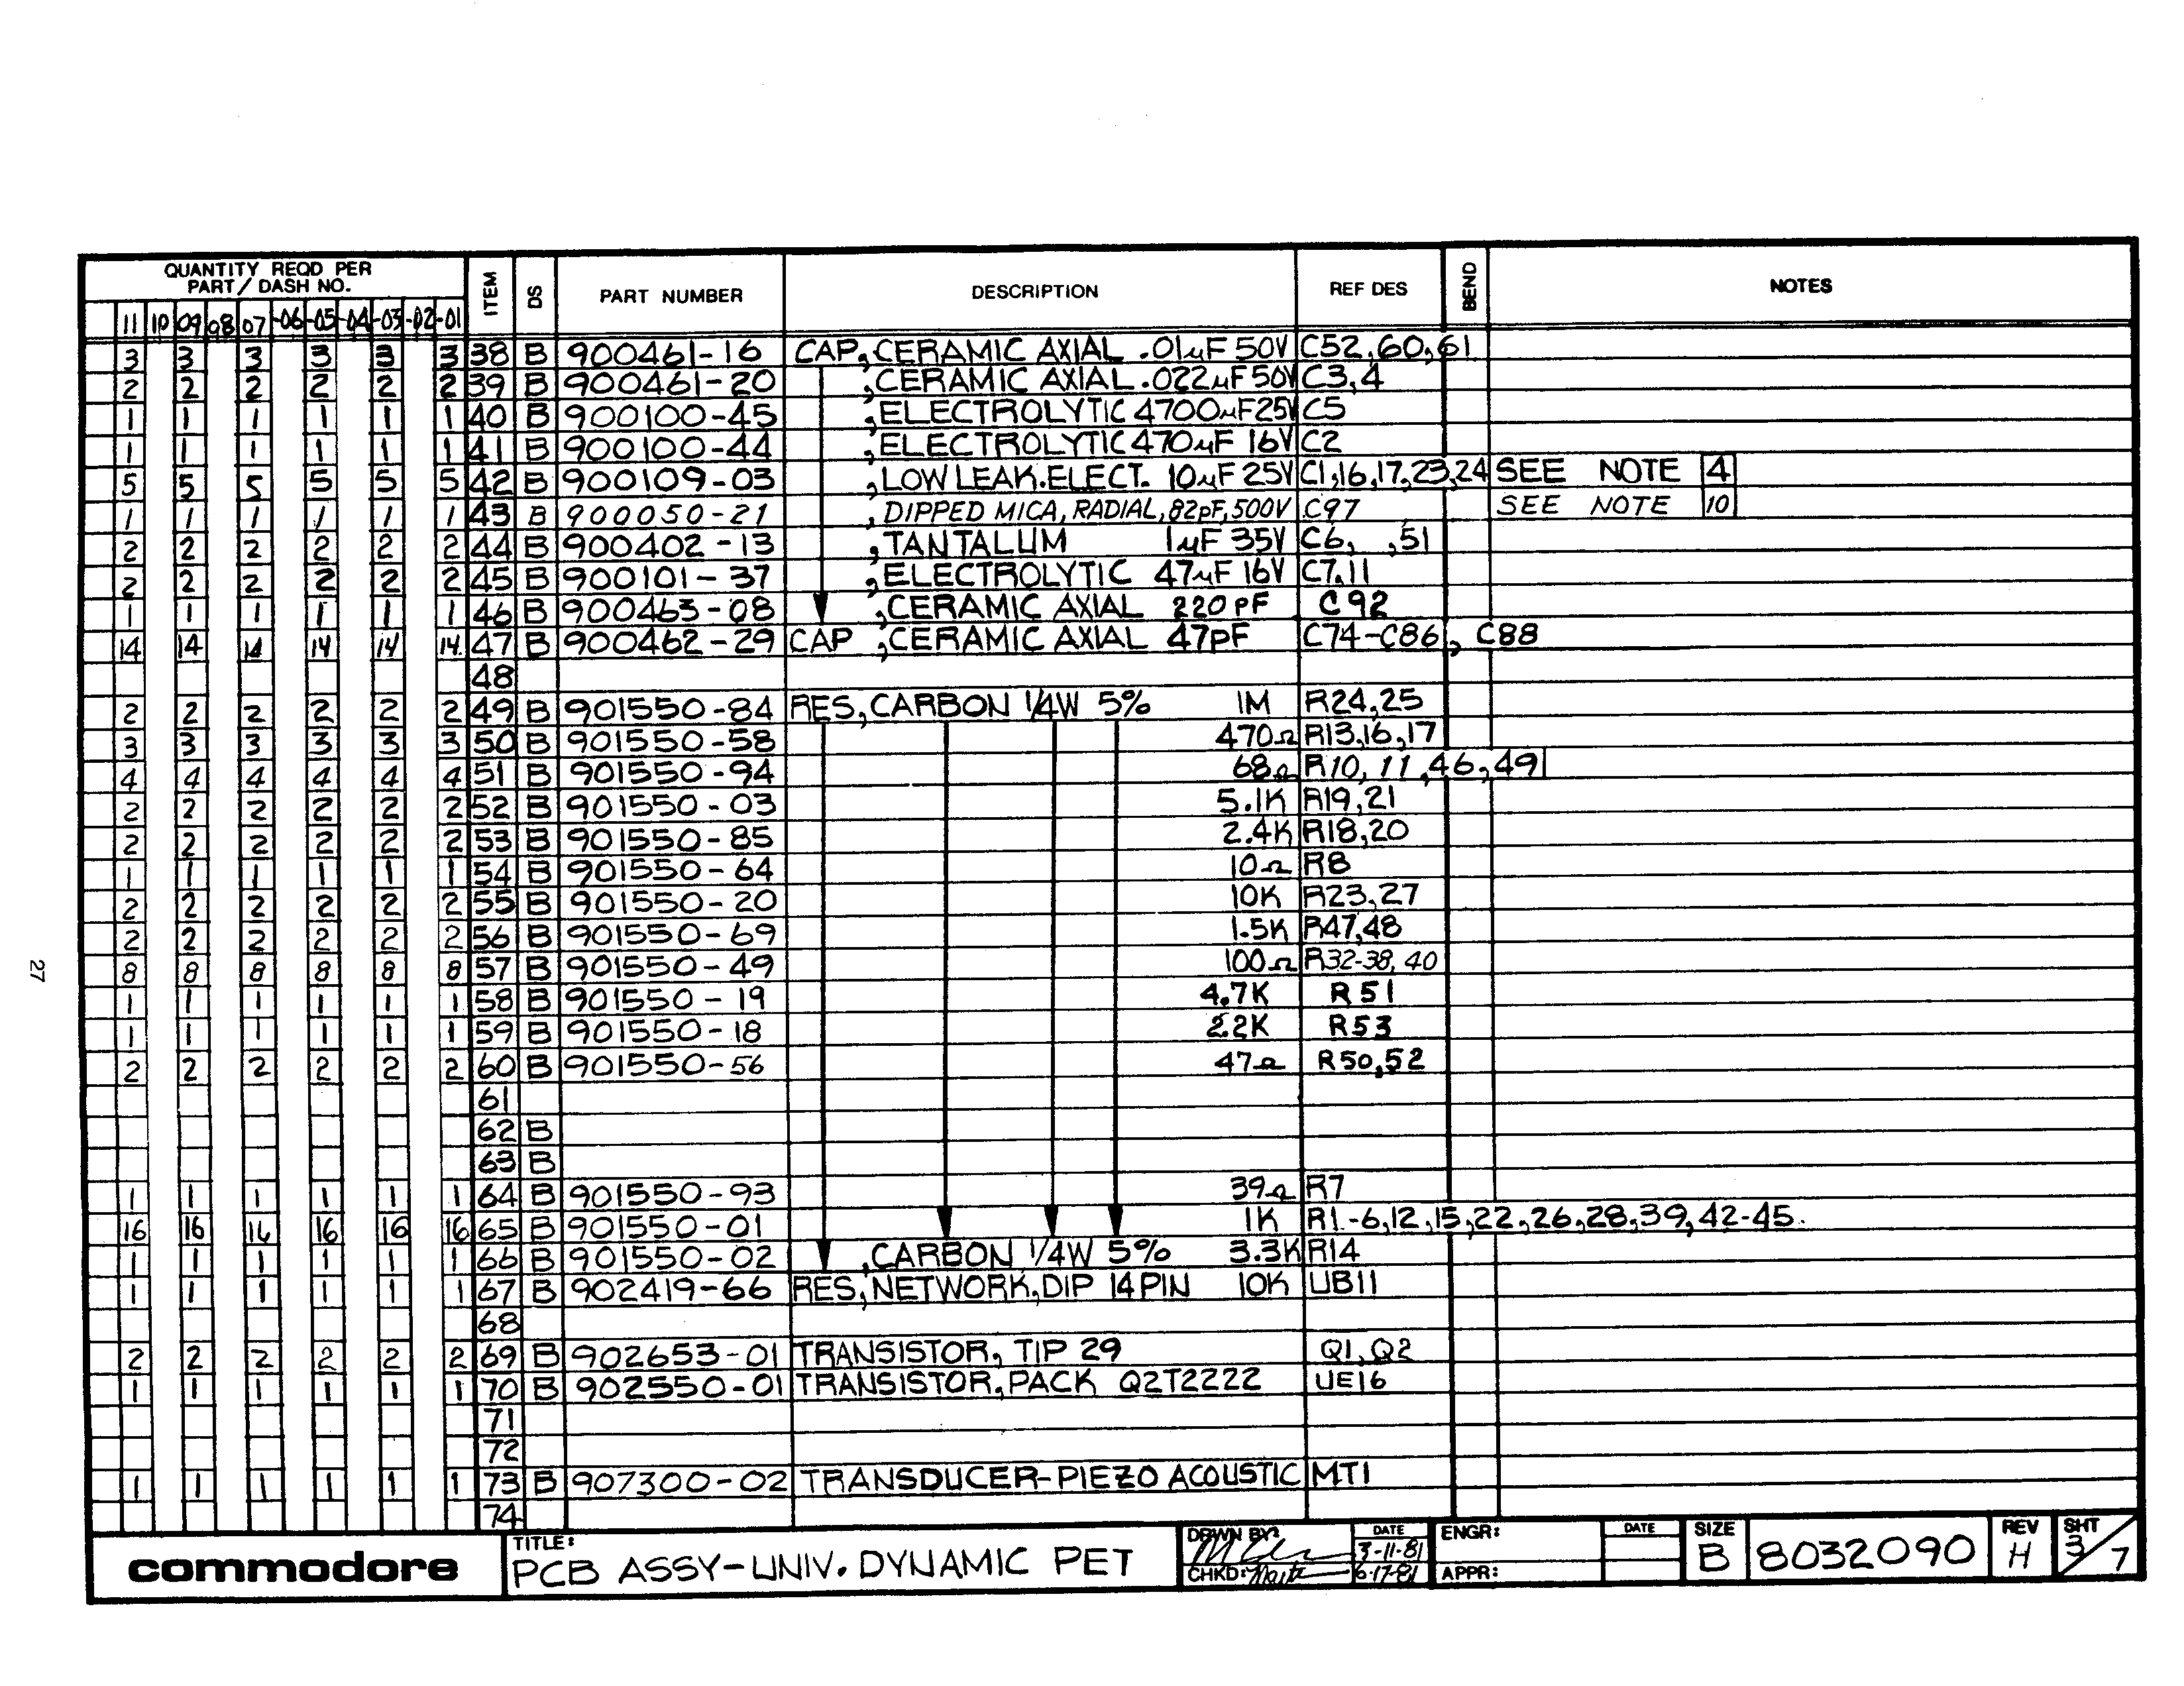 QUANTITY REQD PER
PART / DASH NO.
11 10 09 08 07 -06 -05 -04 -03 -02 -01 ITEM DS PART NUMBER DESCRIPTION REF DES BEND NOTES
3 3 3 3 3 3 38 B 900461-16 CAP, CERAMIC AXIAL .01µF 50V C52,60,61
2 2 2 2 2 2 39 B 900461-20 ,CERAMIC AXIAL .022µF 50V C3,4
1 1 1 1 1 1 40 B 900100-45 ,ELECTROLYTIC 4700µF 25V C5
1 1 1 1 1 1 41 B 900100-44 ,ELECTROLYTIC 470µF 16V C2
5 5 5 5 5 5 42 B 900109-03 ,LOW LEAK. ELECT. 10µF 25V C1,16,17,23,24 SEE NOTE 4
1 1 1 1 1 1 43 B 900050-21 ,DIPPED MICA, RADIAL, 82pF, 500V C97 SEE NOTE 10
2 2 2 2 2 2 44 B 900402-13 ,TANTALUM 1µF 35V C6, ,51
2 2 2 2 2 2 45 B 900101-37 ,ELECTROLYTIC 47µF 16V C7,11
1 1 1 1 1 1 46 B 900463-08 ,CERAMIC AXIAL 220PF C92
14 14 14 14 14 14 47 B 900462-29 CAP ,CERAMIC AXIAL 47pF C74-C86, C88
48
2 2 2 2 2 2 49 B 901550-84 RES, CARBON 1/4W 5% 1M R24,25
3 3 3 3 3 3 50 B 901550-58 470Ω R13,16,17
4 4 4 4 4 4 51 B 901550-94 68Ω R10, 11,46,49
2 2 2 2 2 2 52 B 901550-03 5.1K R19,21
2 2 2 2 2 2 53 B 901550-85 2.4K R18,20
1 1 1 1 1 1 54 B 901550-64 10Ω R8
2 2 2 2 2 2 55 B 901550-20 10K R23,27
2 2 2 2 2 2 56 B 901550-69 1.5K R47,48
8 8 8 8 8 8 57 B 901550-49 100Ω R32-38, 40
1 1 1 1 1 1 58 B 901550-19 4.7K R51
1 1 1 1 1 1 59 B 901550-18 2.2K R53
2 2 2 2 2 2 60 B 901550-56 47Ω R50,52
61
62 B
63 B
1 1 1 1 1 1 64 B 901550-93 39Ω R7
16 16 16 16 16 16 65 B 901550-01 1K R1-6,12,15,22,26,28,39,42-45.
1 1 1 1 1 1 66 B 901550-02 ,CARBON 1/4W 5% 3.3K R14
1 1 1 1 1 1 67 B 902419-66 RES, NETWORK, DIP 14 PIN 10K UB11
68
2 2 2 2 2 2 69 B 902653-01 TRANSISTOR, TIP 29 Q1, Q2
1 1 1 1 1 1 70 B 902550-01 TRANSISTOR, PACK Q2T2222 UE16
71
72
1 1 1 1 1 1 73 B 907300-02 TRANSDUCER-PIEZO ACOUSTIC MT1
74
commodore
TITLE:
PCB ASSY-UNIV. DYNAMIC PET
DRWN BY:
DATE
3-11-81
CHKD:
6-17-81
ENGR:
DATE
APPR:
SIZE
B
8032090
REV
H
SHT
3/7
27